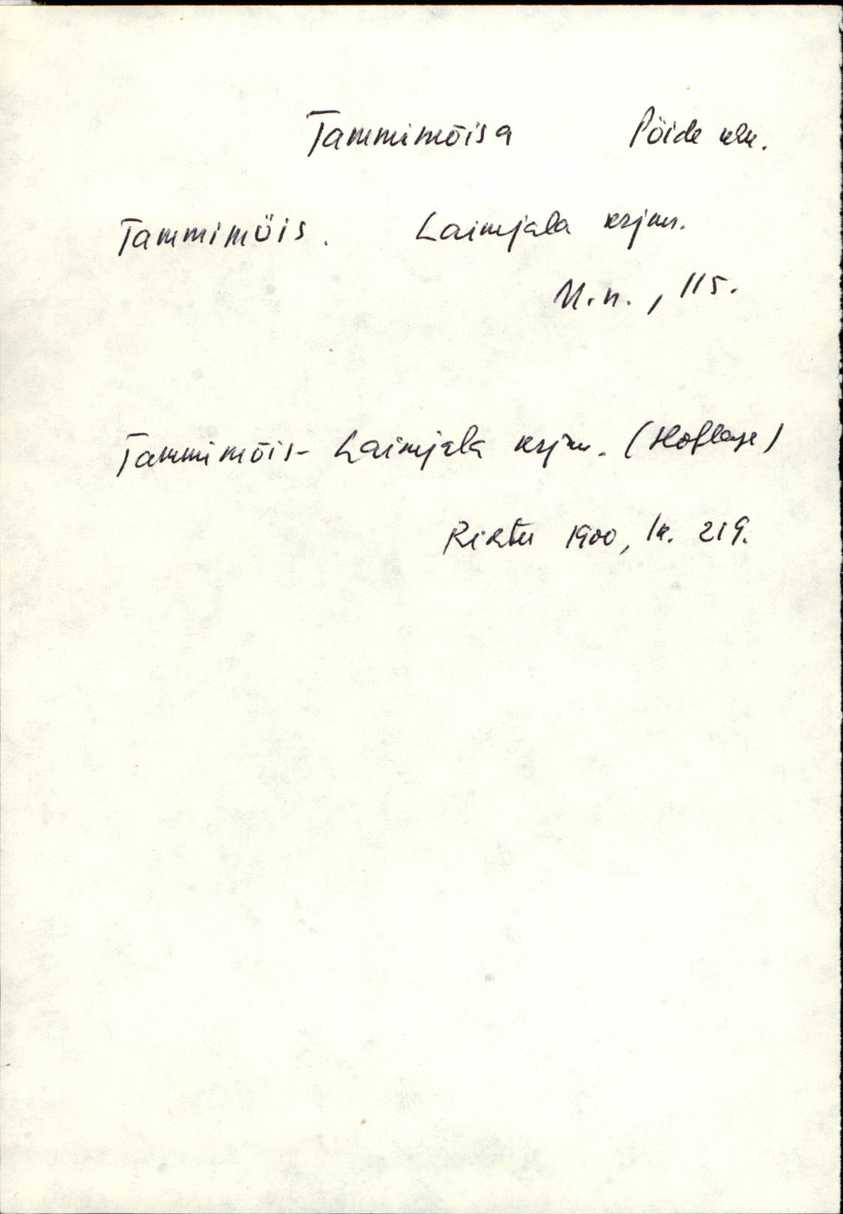 Tammimõisa Pöide khk.
Tammimöis. Laimjala krjm.
M.n., 115.
Tammimõis - Laimjala krjm. (Hoflage)
Richter 1900, lk. 219.